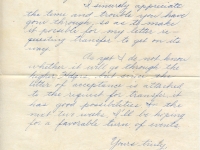 I sincerely appreciate
the time and trouble you have
gone through so as to make
it possible for my letter re-
questing transfer to get on its
way.
As yet I do not know
whether it will go through the
higher Hdqrs, but since the
letter of acceptance is attached
to the request for transfer it
has good possibilities &
next two weeks I'll be hoping
for a favorable turn of events.
Yours truly,